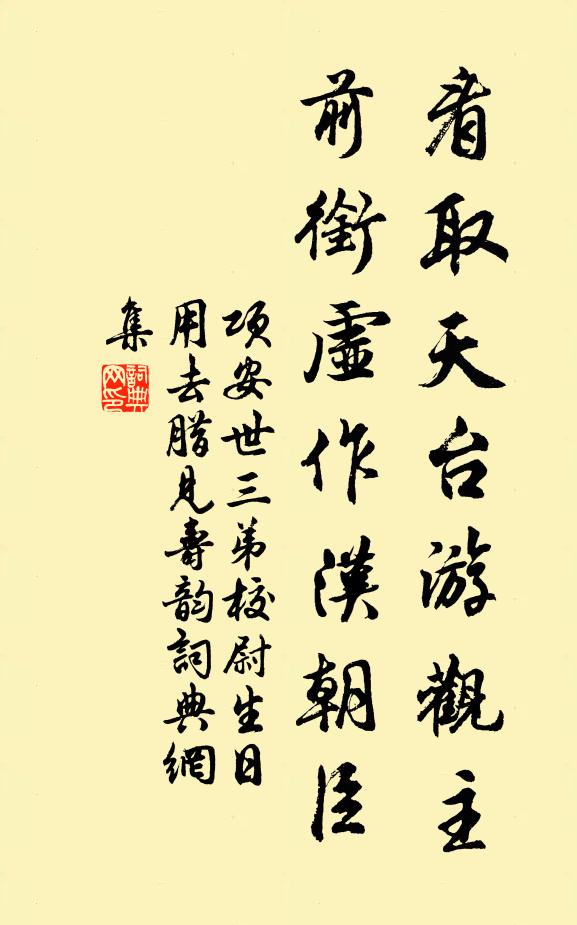 看取天台游觀主
前銜虛作漢朝臣
項安世三弟校尉生日
用去腊見壽韵詞典網
集
詞典
网印